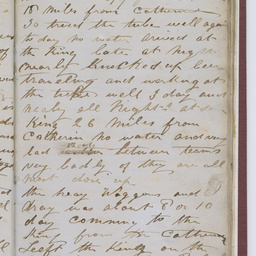 18 miles from Catherine
so tried the tube well again
to day no water arived at
the King late at night
nearly knocked up been
traveling and working at
the tube well 3 days and
nearly all Night
King 26 miles from
Catherin no water and
bad between teams
very badly of they are all
most done up
the heavy Waggons and
dray was about 8 or 10
day comming to the
from the Catherine
Left the King on the